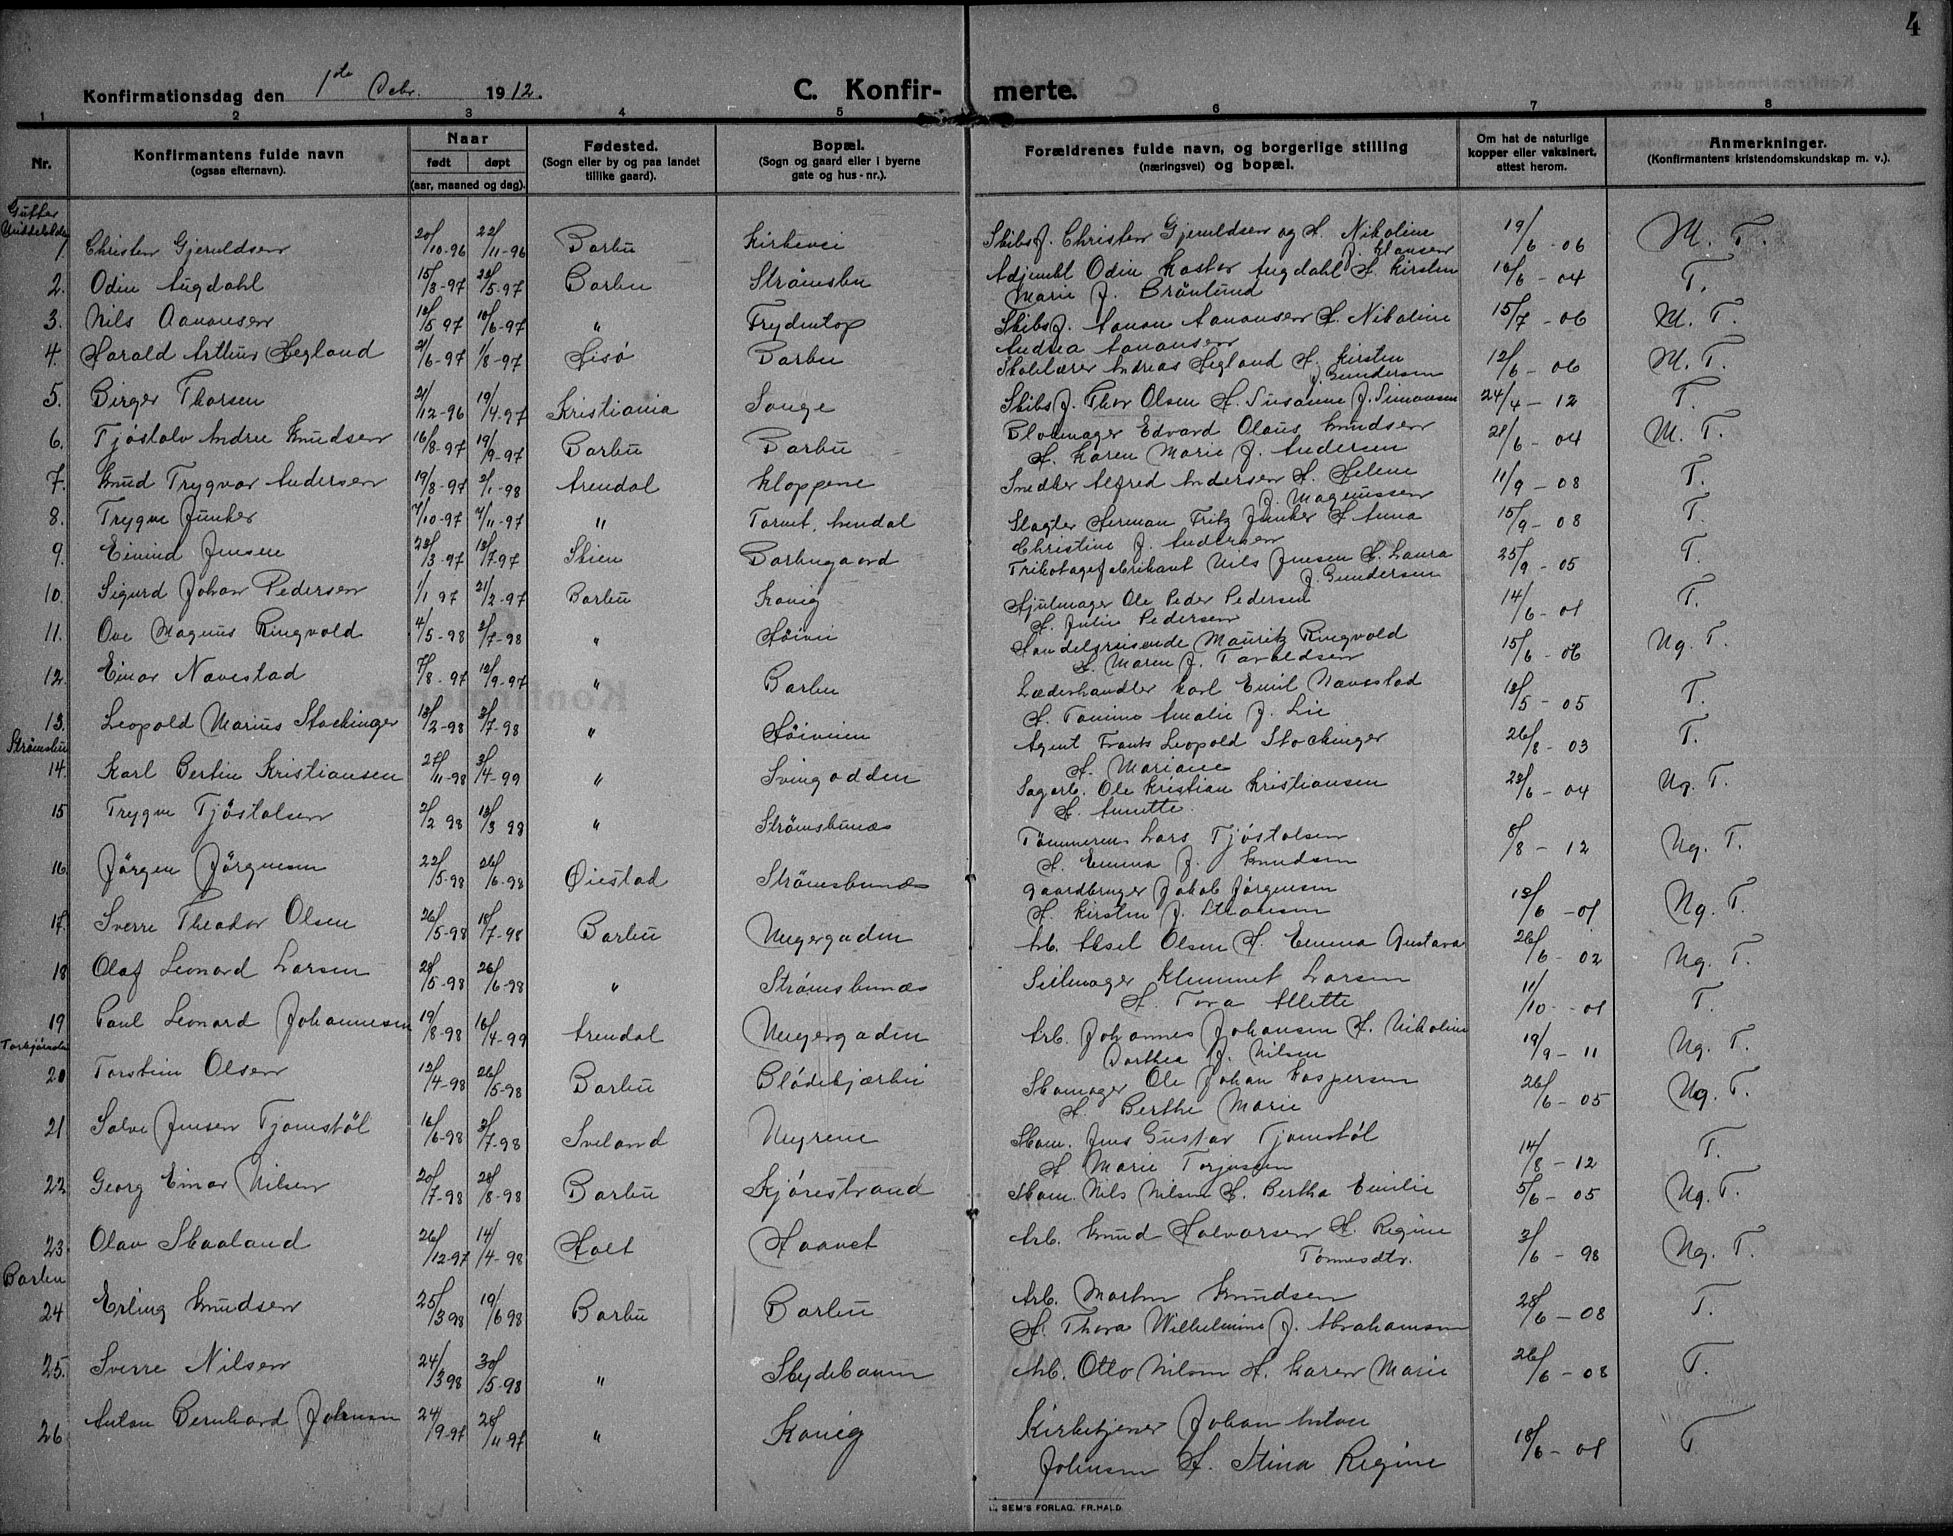 4
Konfirmationsdag den 1ste Octbr. 1912. C. Konfirmerte.
1 2 3 4 5 6 7 8
Nr. Konfirmantens fulde navn (ogsaa efternavn). Naar født døpt (aar, maaned og dag). Fødested. (Sogn eller by og paa landet tillike gaard). Bopæl. (Sogn og gaard eller i byerne gate og hus-nr.). Forældrenes fulde navn, og borgerlige stilling (næringsvei) og bopæl. Om hat de naturlige kopper eller vaksinert, attest herom. Anmerkninger. (Konfirmantens kristendomskundskap m. v.).
Gutter
1. Christen Gjeruldsen 20/10-96 22/11-96 Barbu Kirkevei Skibsf. Christen Gjeruldsen og H. Nikoline f. Hansen 19/6-06 M. T.
2. Odin Augdahl 15/3-97 23/5-97 Barbu Strømsbu Adjunkt Odin Kastor Augdahl H. Kirsten Marie f. Brønlund 16/6-04 T.
3. Nils Aanonsen 12/5 97 10/6-97 " Frydentop Skibsf. Aanon Aanonsen H. Nikoline Andrea Aanonsen 15/7-06 M. T.
4 Harald Arthur Hegland 21/6-97 1/8-97 Hisø Barbu Skolelærer Andreas Hegland H. Kirsten f. Gundersen 12/6-06 M. T.
5. Birger Thorsen 21/12-96 19/4-97 Kristiania Songe Skibsf. Thor Olsen H. Susanne f. Simonsen 24/4-12 T.
6. Tjøstolv Andree Knudsen 16/8-97 19/9-97 Barbu Barbu Blokmager Edvard Olaus Knudsen H. Karen Marie f. Andersen 21/6-04 M. T.
7. Knud Trygvar Andersen 19/8-97 2/1-98 Arendal Kloppene Snedker Alfred Andersen H. Helene f. Magnussen 11/9-08 T.
8. Trygve Junker 7/10-97 7/11-97 " Torvet, Arendal Slagter Herman Fritz Junker H. Anna Christine f. Andersen 15/9-08 T.
9. Eivind Jensen 23/3-97 13/7-97 Skien Barbugaard Trikotagefabrikant Nils Jensen H. Laura f. Gundersen 25/9-05 T.
10. Sigurd Johan Pedersen 1/1 97 21/2-97 Barbu Kanig Hjulmager Ole Peder Pedersen H. Julie Pedersen 14/6-01 T.
11. Ove Magnus Ringvold 4/5-98 3/7-98 " Høivei Handelsreisende Mauritz Ringvold H. Maren f. Taraldsen 15/6-06 Ng. T.
12. Einar Navestad 7/8-97 12/9-97 " Barbu Læderhandler Karl Emil Navestad H. Tomine Amalie f. Lie 13/5-05 T.
13. Leopold Marius Stockinger 13/2-98 3/7-98 " Høiveien Agent Frants Leopold Stockinger H. Mariane 26/8-03 T.
Strømsbu
14. Karl Bertin Kristiansen 27/11-98 3/4-99 " Svingodden Sagarb. Ole Kristian Kristiansen H. Anette. 23/6-04 Ng. T.
15 Trygve Tjøstolsen 2/2 98 13/3 98 " Strømsbunæs Tømmerm. Lars Tjøstolsen H. Emma f. Knudsen 8/8-12 Ng. T.
16. Jørgen Jørgensen 22/5-98 26/6-98 Øiestad Strømsbunæs Gaardbruger Jakob Jørgensen H. Kirsten f. 13/6-01 Ng. T.
17. Sverre Theodor Olsen 26/5-98 18/7-98 Barbu Ungergaden Arb. Aksel Olsen H. Emma Gustava 26/6-02 Ng. T.
18 Olaf Leonard Larsen 28/5-98 26/6-98 " Strømsbunæs Seilmager Klemmet Larsen H. Tora Alette 11/10-01 T.
19 Paul Leonard Johannesen 19/8-98 16/4-99 Arendal Ungergaden Arb. Johannes Johansen H. Nikoline Dorthea f. Nilsen 19/9-11 Ng. T.
20 Torstein Olsen 12/4-98 26/5-98 Barbu Blødekjærbei Skomager Ole Johan Kaspersen H. Berthe Marie 26/6-05 Ng. T.
21 Salve Jensen Tjomstøl 16/6-98 3/7-98 Sveland Myrene Skom. Jens Gustav Tjomstøl H. Marie Torjussen 14/8-12 T.
22 Georg Einar Nilsen 20/7-98 28/8-98 Barbu Kjørestrand Skom. Nils Nilsen H. Bertha Emilie 5/6-05 Ng. T.
23. Olav Skaaland 26/12-97 14/4-98 Holt Haavet Arb. Knud Halvorsen H. Regine Tønnesdtr. 3/6-98 Ng. T.
Barbu
24 Erling Knudsen 25/3 98 19/6 98 Barbu Barbu Arb. Morten Knudsen H. Thora Wilhelmine f. Abrahamsen 28/6-08 T.
25. Sverre Nilsen 24/3 98 30/5-98 " Skydebanen Arb. Otto Nilsen H. Karen Marie 26/6-08 T.
26 Anton Bernhard Johnsen 24/9-97 28/11-97 " Kanig Kirketjener Johan Anton Johnsen H. Stina Regine 18/6-01 T.
SEM'S FORLAG. FR.HALD.